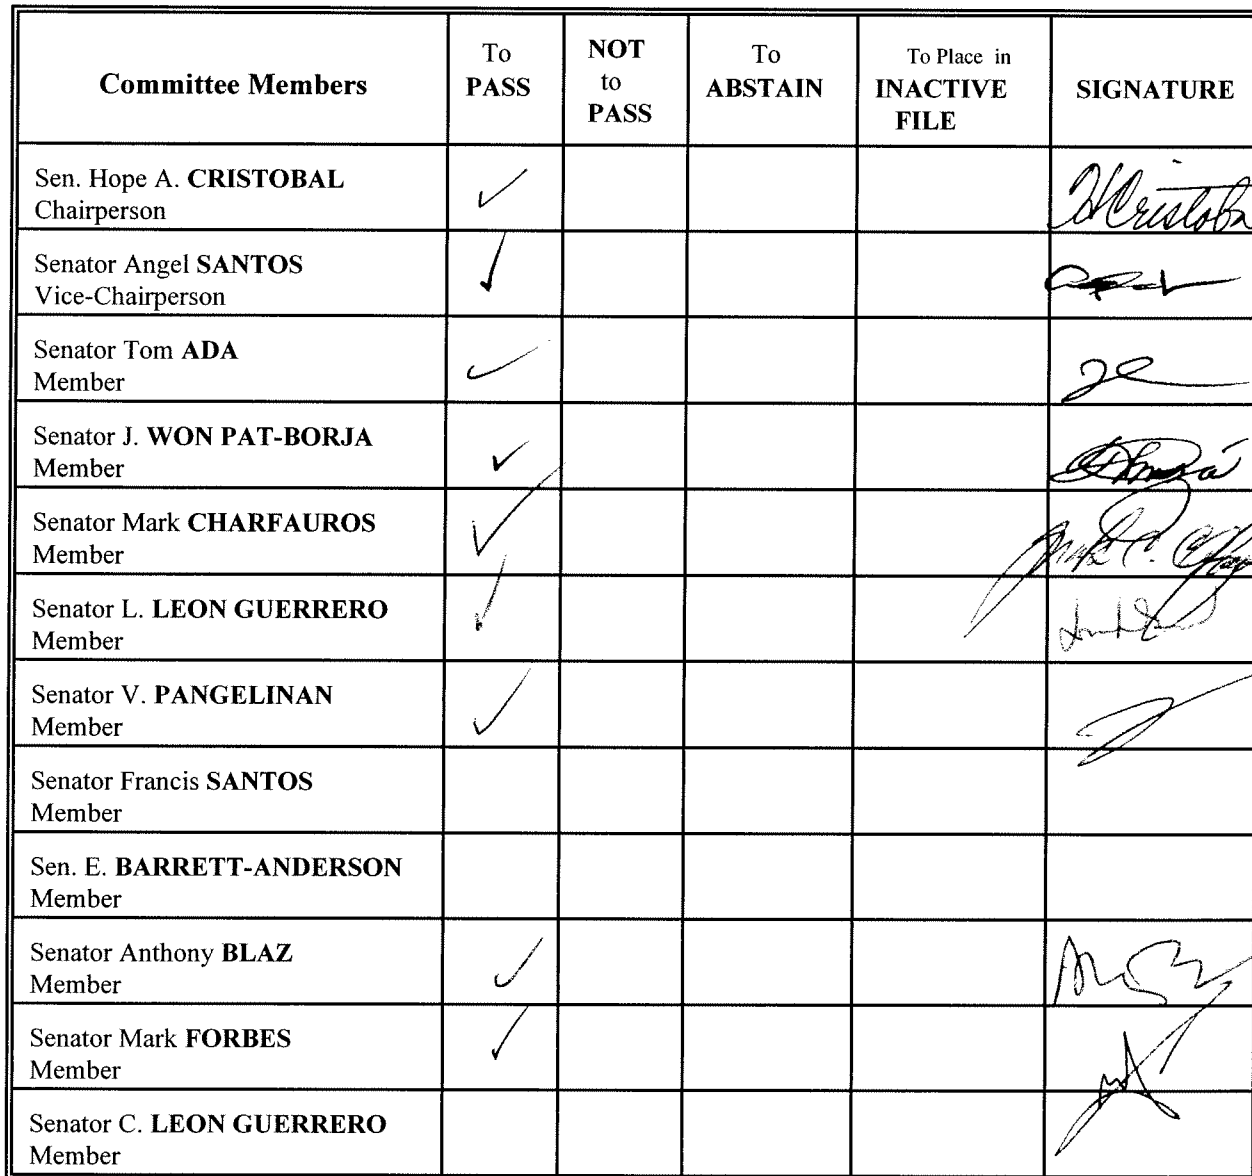 Committee Members
To
PASS
NOT
to
PASS
To
ABSTAIN
To Place in
INACTIVE
FILE
SIGNATURE
Sen. Hope A. CRISTOBAL
Chairperson
✓
HCristoba
Senator Angel SANTOS
Vice-Chairperson
✓
Senator Tom ADA
Member
✓
Senator J. WON PAT-BORJA
Member
✓
Senator Mark CHARFAUROS
Member
✓
Senator L. LEON GUERRERO
Member
✓
Senator V. PANGELINAN
Member
✓
Senator Francis SANTOS
Member
Sen. E. BARRETT-ANDERSON
Member
Senator Anthony BLAZ
Member
✓
Senator Mark FORBES
Member
✓
Senator C. LEON GUERRERO
Member